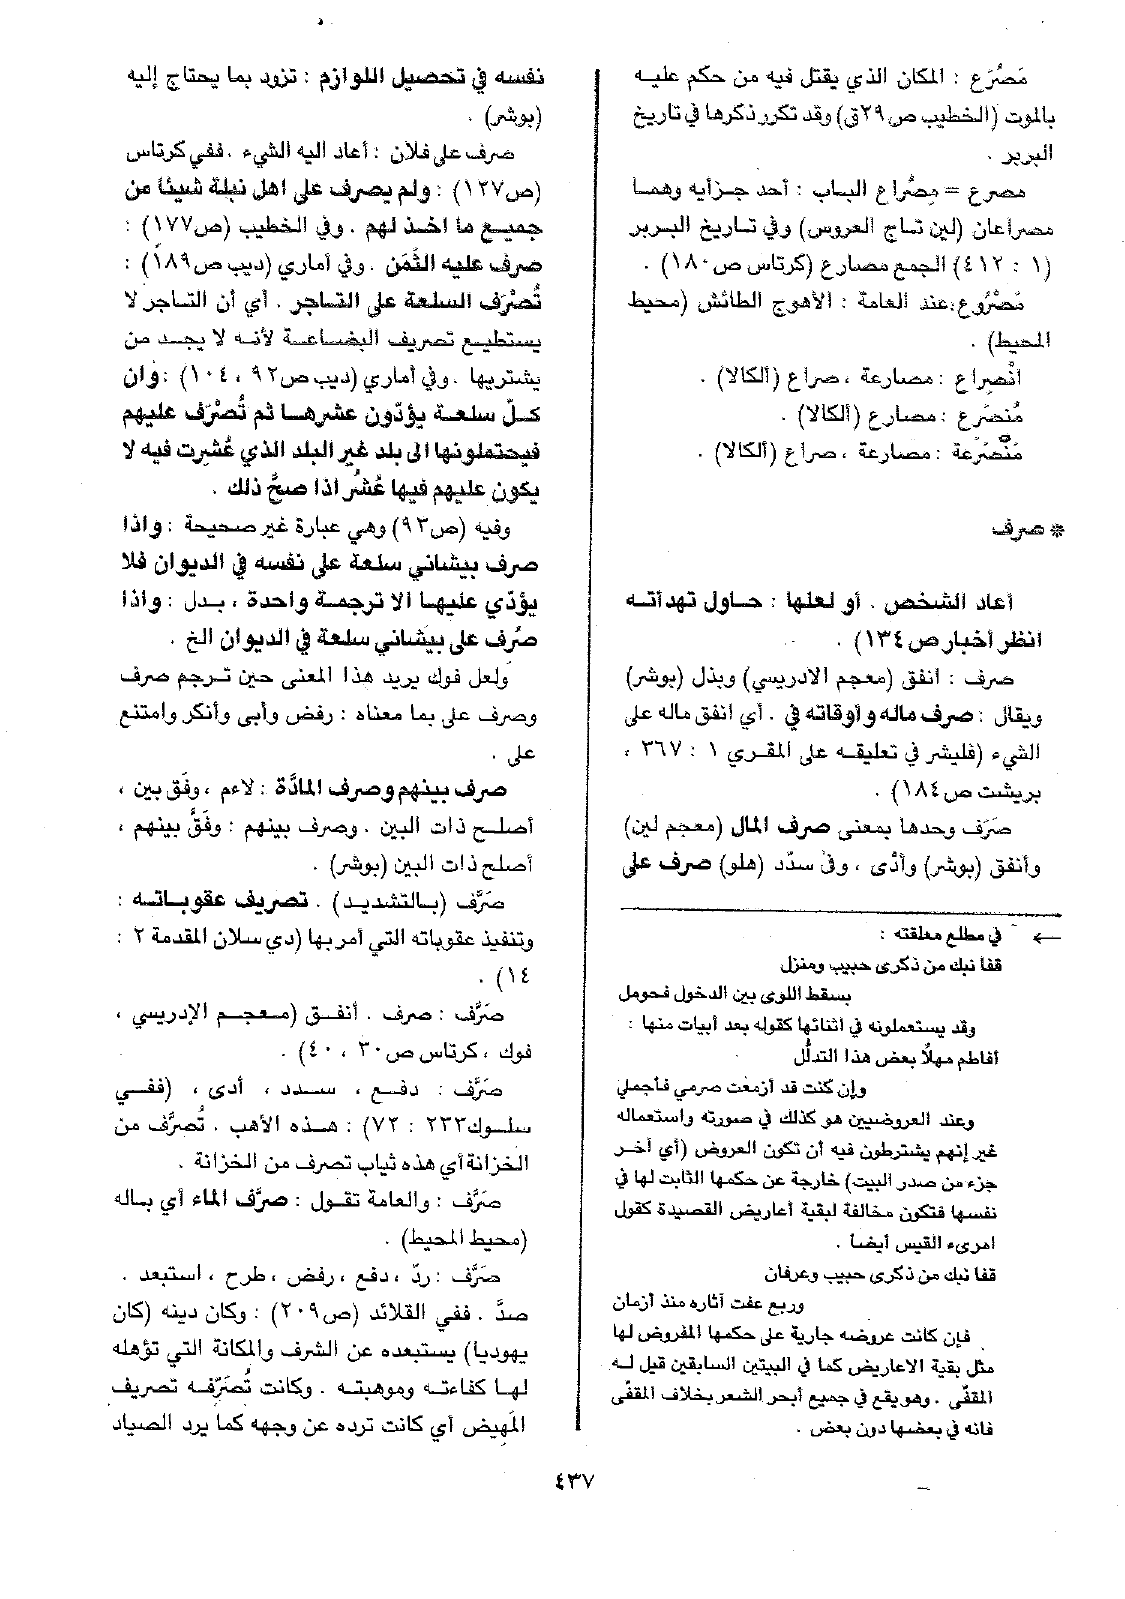 مَصْرَع : المكان الذي يقتل فيه من حكم عليه
بالموت (الخطيب ص٢٩ق) وقد تكرر ذكرها في تاريخ
البربر .
مصرع = مِصْراع الباب : أحد جزأيه وهما
مصراعان (لين تاج العروس) وفي تاريخ البربر
(١ : ٤١٢) الجمع مصارع (كرتاس ص١٨٠) .
مَصْرُوع : عند العامة : الأهوج الطائش (محيط
المحيط) .
انْصِراع : مصارعة ، صراع (ألكالا) .
مُنصَرع : مصارع (ألكالا) .
مُنْصَرَعة : مصارعة ، صراع (ألكالا) .
* صرف
أعاد الشخص . أو لعلها : حاول تهدأته
انظر أخبار ص١٣٤) .
صرف : أنفق (معجم الادريسي) وبذل (بوشر)
ويقال : صرف ماله وأوقاته في . أي انفق ماله على
الشيء (فليشر في تعليقه على المقري ١ : ٣٦٧ ،
بريشت ص١٨٤) .
صَرَف وحدها بمعنى صرف المال (معجم لين)
وأنفق (بوشر) وأدّى ، وفى سدّد (هلو) صرف على
← في مطلع معلقته :
قفا نبك من ذكرى حبيب ومنزل
بسقط اللوى بين الدخول فحومل
وقد يستعملونه في اثنائها كقوله بعد أبيات منها :
أفاطم مهلاً بعض هذا التدلُّل
وإن كنت قد أزمعت صرمي فأجملي
وعند العروضيين هو كذلك في صورته واستعماله
غير إنهم يشترطون فيه أن تكون العروض (أي آخر
جزء من صدر البيت) خارجة عن حكمها الثابت لها في
نفسها فتكون مخالفة لبقية أعاريض القصيدة كقول
امرىء القيس أيضاً .
قفا نبك من ذكرى حبيب وعرفان
وربع عفت آثاره منذ أزمان
فإن كانت عروضه جارية على حكمها المفروض لها
مثل بقية الاعاريض كما في البيتين السابقين قيل له
المقفّى . وهو يقع في جميع أبحر الشعر بخلاف المقفّى
فانه في بعضها دون بعض .
نفسه في تحصيل اللوازم : تزود بما يحتاج إليه
(بوشر) .
صرف على فلان : أعاد اليه الشيء . ففي كرتاس
(ص١٢٧) : ولم يصرف على اهل نبلة شيئاً من
جميع ما اخذ لهم . وفي الخطيب (ص١٧٧) :
صرف عليه الثَمَن . وفي أماري (ديب ص١٨٩) :
تُصْرَف السلعة على التاجر . أي أن التاجر لا
يستطيع تصريف البضاعة لأنه لا يجد من
يشتريها . وفي أماري (ديب ص٩٢ ، ١٠٤) : وان
كلّ سلعة يؤدّون عشرها ثم تُصْرَف عليهم
فيحتملونها الى بلد غير البلد الذي عُشرت فيه لا
يكون عليهم فيها عُشُر اذا صحَّ ذلك .
وفيه (ص٩٣) وهي عبارة غير صحيحة : واذا
صرف بيشاني سلعة على نفسه في الديوان فلا
يؤدّي عليها الا ترجمة واحدة ، بدل : واذا
صُرف على بيشاني سلعة في الديوان الخ .
ولعل فوك يريد هذا المعنى حين ترجم صرف
وصرف على بما معناه : رفض وأبى وأنكر وامتنع
على .
صرف بينهم وصرف المادَّة : لاءم ، وفَق بين ،
أصلح ذات البين . وصرف بينهم : وفَّق بينهم ،
أصلح ذات البين (بوشر) .
صَرَّف (بالتشديد) . تصريف عقوباته :
وتنفيذ عقوباته التي أمر بها (دي سلان المقدمة ٢ :
١٤) .
صَرَّف : صرف . أنفق (معجم الإدريسي ،
فوك ، كرتاس ص٣٠ ، ٤٠) .
صَرَّف : دفع ، سدد ، أدى ، (ففي
سلوك٢٣٣ : ٧٢) : هذه الأهب . تُصرَّف من
الخزانة أي هذه ثياب تصرف من الخزانة .
صَرَّف : والعامة تقول : صرَّف الماء أي باله
(محيط المحيط) .
صَرَّف : ردّ ، دفع ، رفض ، طرح ، استبعد .
صدَّ . ففي القلائد (ص٢٠٩) : وكان دينه (كان
يهوديا) يستبعده عن الشرف والمكانة التي تؤهله
لها كفاءته وموهبته . وكانت تُصَرّفه تصريف
المَهيض أي كانت ترده عن وجهه كما يرد الصياد
٤٣٧